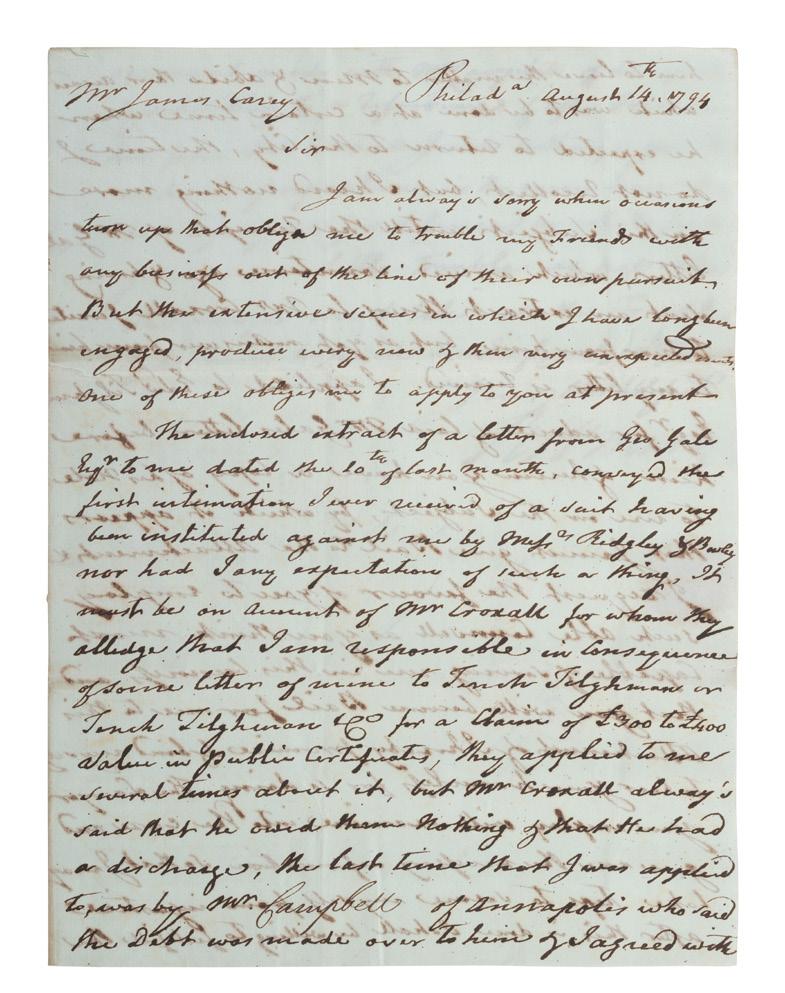 Mr James Carey Philada August 14th. 1794
Sir
I am always sorry when occasions
turn up that oblige me to trouble my Friends with
any business out of the line of their own pursuit,
But the extensive scenes in which I have long been
engaged, produce every now & then very unexpected
one of these obliges me to apply to you at present
The enclosed extract of a letter from Geo Gale
Esqr to me dated the 10th of last month, conveyed the
first intimation I ever received of a suit having
been instituted against me by Messrs Ridgley & Bowley
nor had I any expectation of such a thing, It
must be on account of Mr Croxall for whom they
alledge that I am responsible in Consequence
of some letter of mine to Tench Tilghman or
Tench Tilghman & Co for a Claim of £300 to £400
Value in public Certificates, they applied to me
several times about it, but Mr Croxall always
said that he owed them Nothing & that He had
a discharge, the last time that I was applied
to, was by Mr. Campbell of Annapolis who said
the Debt was made over to him & I agreed with